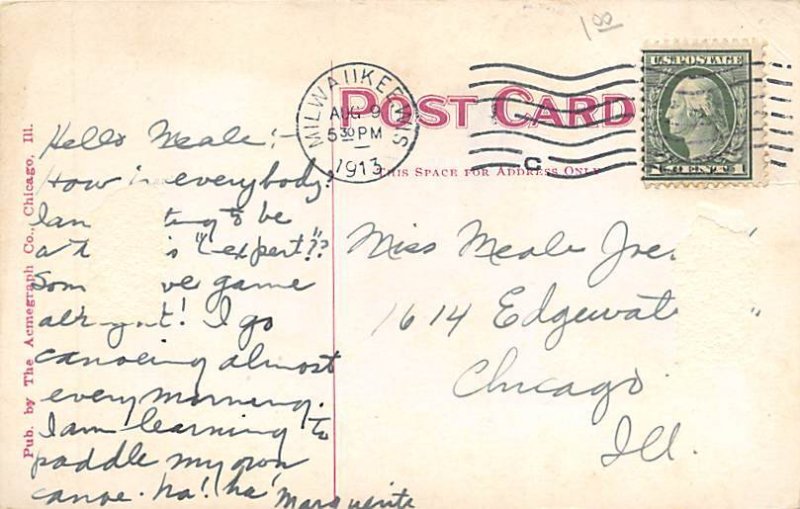 1 00
MILWAUKEE, WIS
AUG 9
5 30 PM
1913
C
U.S. POSTAGE
CENTS
POST CARD
THIS SPACE FOR ADDRESS ONLY
Pub. by The Acmegraph Co., Chicago, Ill.
Hello Meale :-
How is everybody?
I am ting to be
a t s "expert"??
Som ve game
alright! I go
canoeing almost
every morning.
I am learning to
paddle my own
canoe. Ha! ha!
Marguerite
Miss Meale
1614 Edgewat
Chicago
Ill.